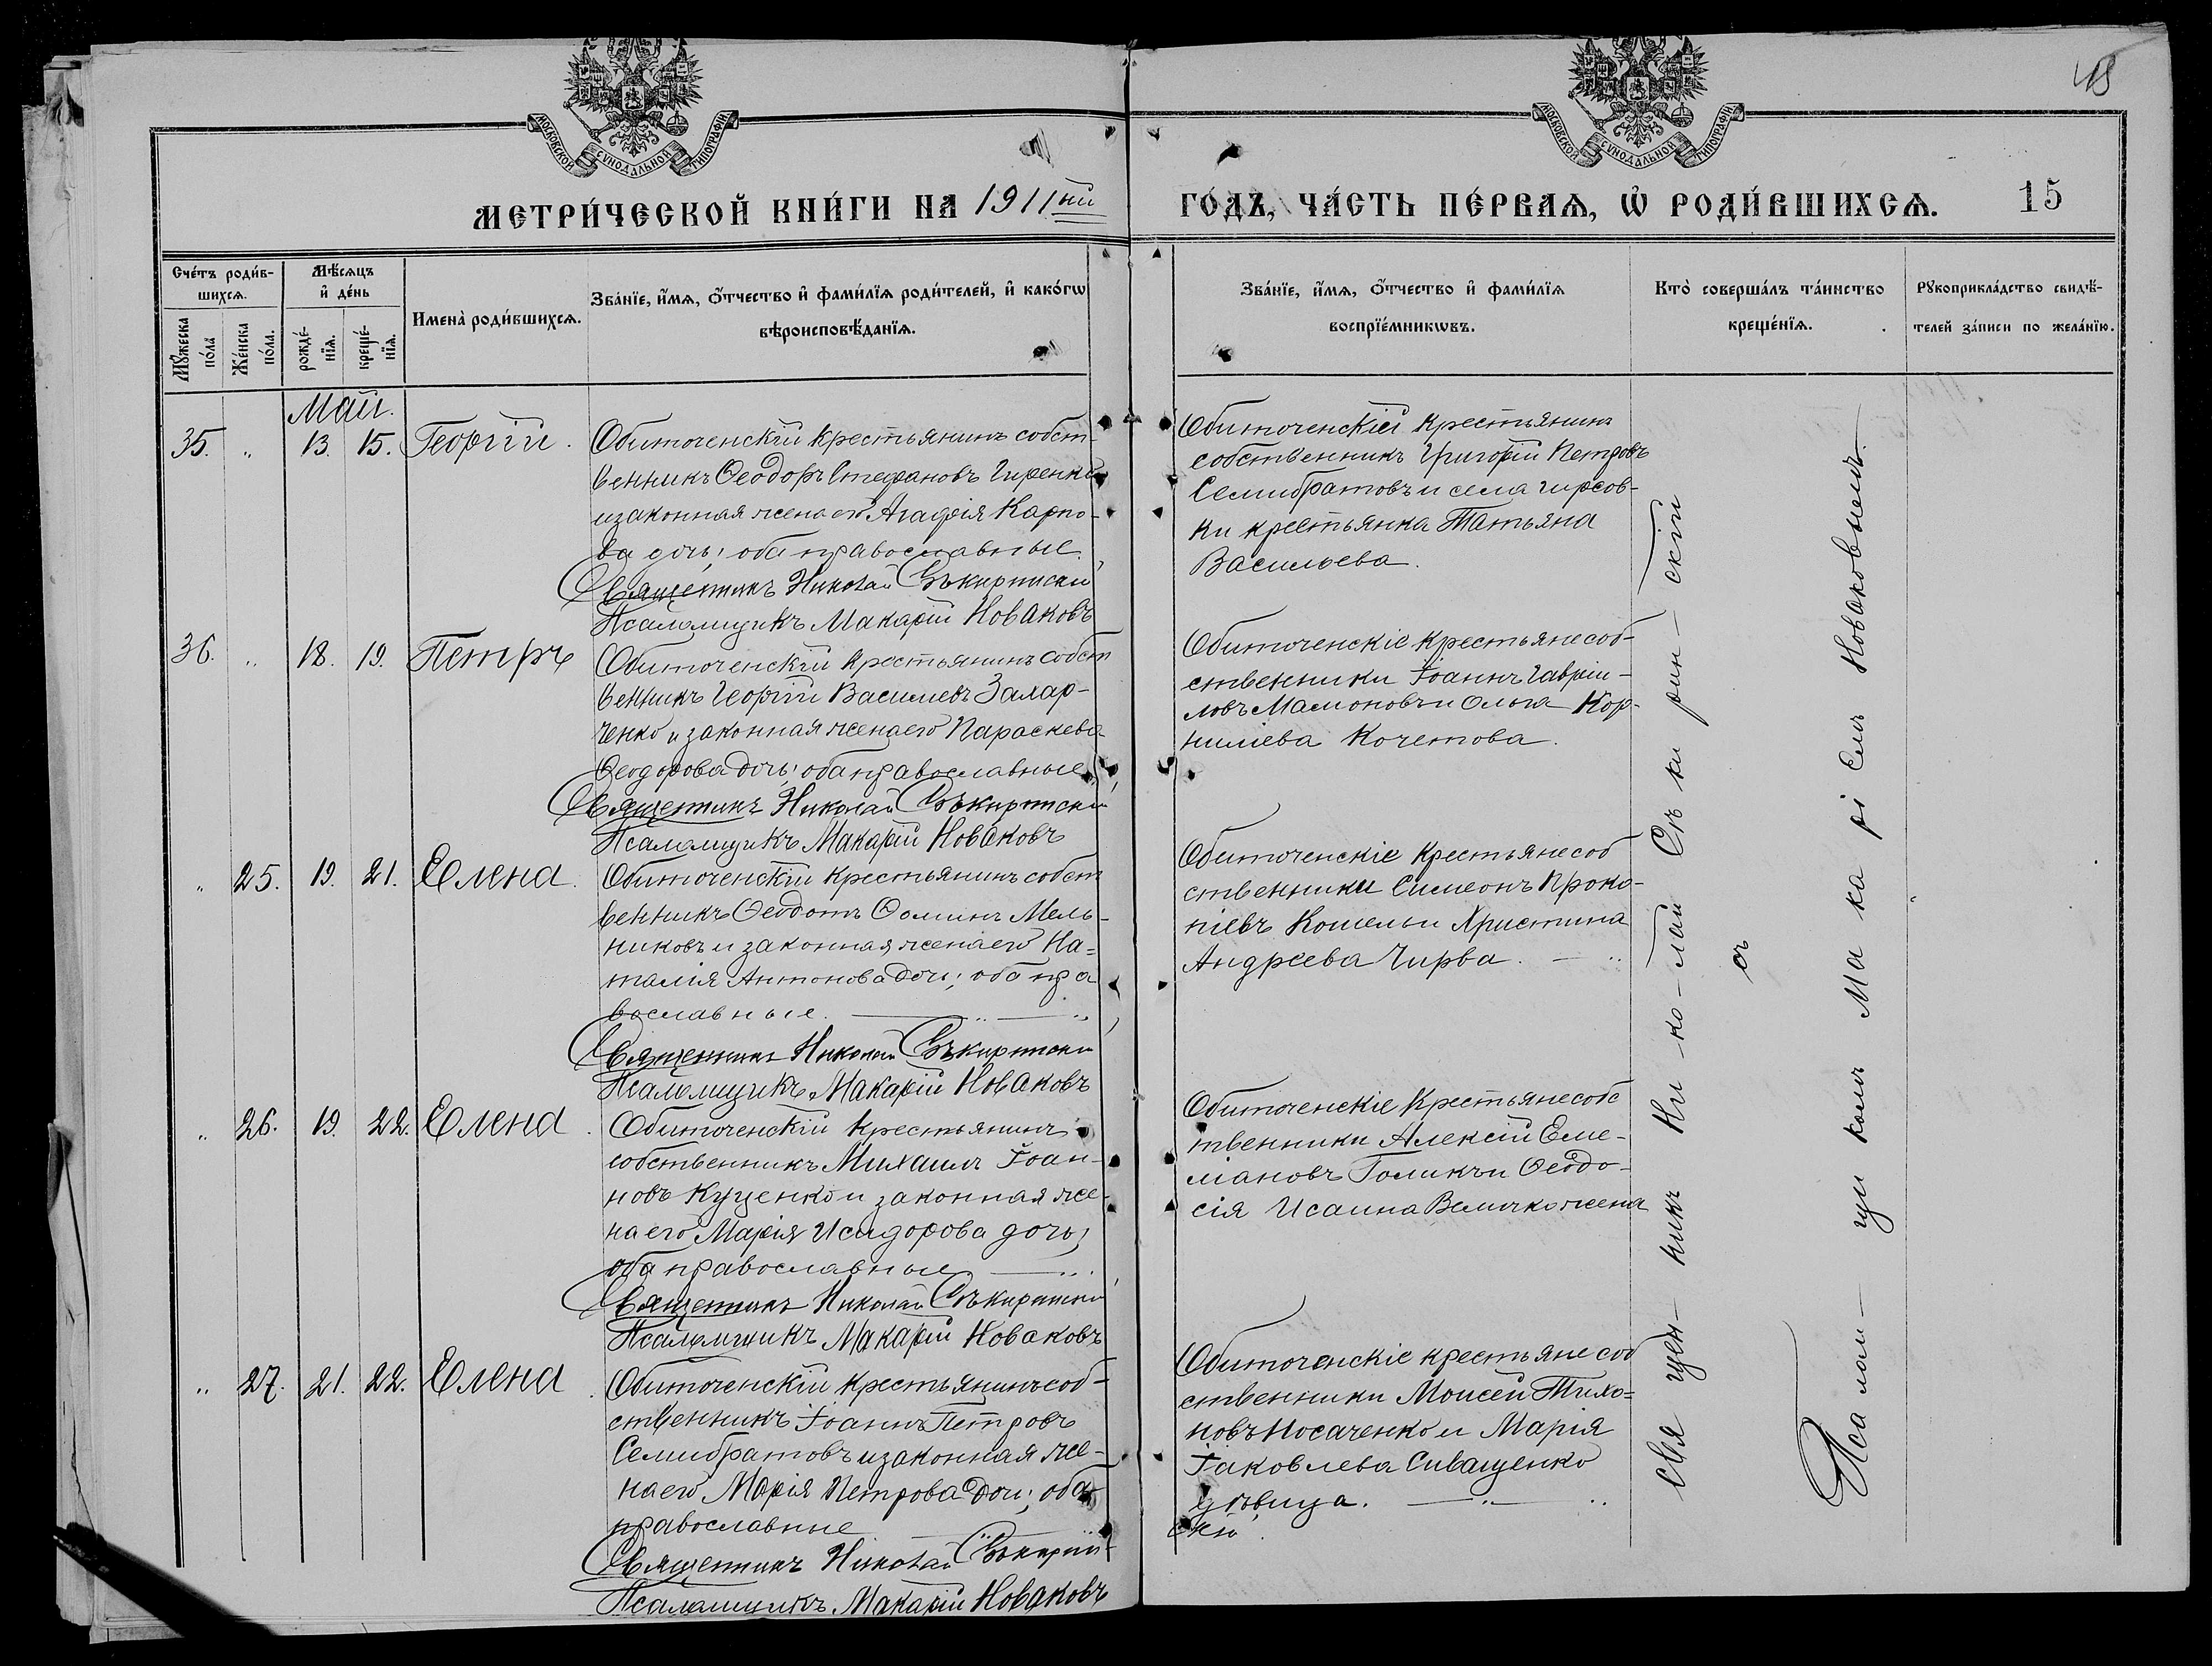 МОСКОВСКОЙ СѴНОДАЛЬНОЙ ТИПОГРАФІИ
МОСКОВСКОЙ СѴНОДАЛЬНОЙ ТИПОГРАФІИ
МЕТРИ́ЧЕСКОЙ КНИ́ГИ НА 1911ый ГО́ДЪ, ЧА́СТЬ ПЕ́РВАѦ, Ѡ҆ РОДИ́ВШИХСѦ. 15
Сче́тъ роди́в-
шихсѧ.
Мꙋ́жеска
по́ла
Же́нска
по́ла.
Мѣ́сѧцъ
и҆ де́нь
рожде́-
нїѧ.
креще́-
нїѧ.
Имена̀ роди́вшихсѧ.
Зва́нїе, и҆́мѧ, ѻ҆́тчество и҆ фами́лїѧ роди́телей, и҆ како́гѡ
вѣроисповѣ́данїѧ.
Зва́нїе, и҆́мѧ, ѻ҆́тчество и҆ фами́лїѧ
воспрїе́мникѡвъ.
Кто̀ соверша́лъ та́инство
креще́нїѧ.
Рꙋкоприкла́дство свидѣ́-
телей за́писи по жела́нїю.
Май.
35. „ 13. 15. Георгій.
Обиточенскій крестьянинъ собст-
венникъ Ѳеодоръ Стефановъ Гиренко
и законная жена его Агафія Карпо-
ва дочь; оба православные.
Священникъ Николай Сѣкиринскій
Псаломщикъ Макарій Новаковъ
Обиточенскій крестьянинъ
собственникъ Григорій Петровъ
Семибратовъ и села Гирсов-
ки крестьянка Татьяна
Васильева.
36. „ 18. 19. Петръ
Обиточенскій крестьянинъ собст
венникъ Георгій Васильевъ Захар-
ченко и законная жена его Параскева
Ѳеодорова дочь; оба православные.
Священникъ Николай Сѣкиринскій
Псаломщикъ Макарій Новаковъ
Обиточенскіе крестьяне соб-
ственники Іоаннъ Гавріи-
ловъ Мамоновъ и Ольга Кор-
нилiева Кочетова.
„ 25. 19. 21. Елена.
Обиточенскій крестьянинъ собст
венникъ Ѳеодотъ Ѳоминъ Мель-
никовъ и законная жена его На=
талія Антонова дочь; оба пра
вославные.
Священникъ Николай Сѣкиринскій
Псаломщикъ Макарій Новаковъ
Обиточенскіе крестьяне соб
ственники Симеонъ Проко-
піевъ Кошель и Христина
Андреева Чирва.
„ 26. 19. 22. Елена.
Обиточенскій крестьянинъ
собственникъ Михаилъ Іоан-
новъ Куценко и законная же-
на его Марія Исидорова дочь;
оба православные.
Священникъ Николай Сѣкиринскій
Псаломщикъ Макарій Новаковъ
Обиточенскіе крестьяне собс
твенники Алексій Еме-
ліановъ Голикъ и Ѳеодо-
сія Исаина Величко жена
„ 27. 21. 22. Елена.
Обиточенскій крестьянинъ соб-
ственникъ Іоаннъ Петровъ
Семибратовъ и законная же-
на его Марія Петрова дочь; оба
православные
Священникъ Николай Сѣкирин-
скій.
Псаломщикъ Макарій Новаковъ
Обиточенскіе крестьяне соб
ственники Моисей Тихо=
новъ Носаченко и Марія
Іаковлева Сиващенко
дѣвица.
Свя щен- никъ Ни -ко- лай Сѣ ки рин- скій
съ
Псалом- щи комъ Ма ка рі емъ Новаковымъ.